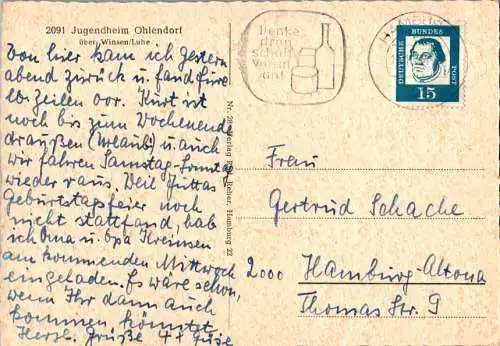 2091 Jugendheim Ohlendorf
über Winsen/Luhe
Von hier kam ich gestern
abend zurück u. fand Eure
lb. Zeilen vor. Kurt ist
noch bis zum Wochenende
draußen (Urlaub) u. auch
wir fahren Samstag-Sonntag
wieder raus. Weil Juttas
Geburtstagsfeier noch
nicht stattfand, hab
ich Oma u. Opa Kreinsen
am kommenden Mittwoch
eingeladen. Es wäre schön,
wenn Ihr dann auch
kommen könntet
Herzl. Grüße
Verlag
Reher, Hamburg 22
Denke
dran
schaff
Vorrat
an!
DEUTSCHE BUNDESPOST
15
Frau
Gertrud Schache
2000 Hamburg-Altona
Thomas Str. 9